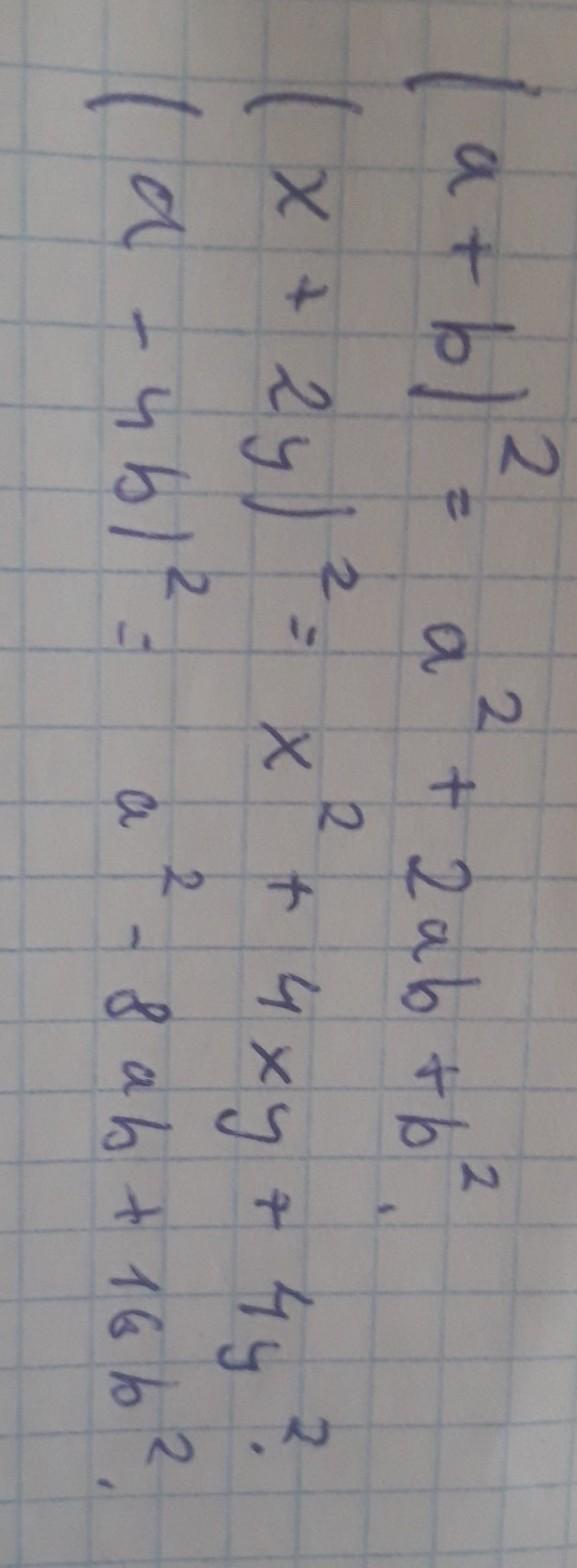 (a + b)² = a² + 2ab + b².
(x + 2y)² = x² + 4xy + 4y².
(a - 4b)² = a² - 8ab + 16b².